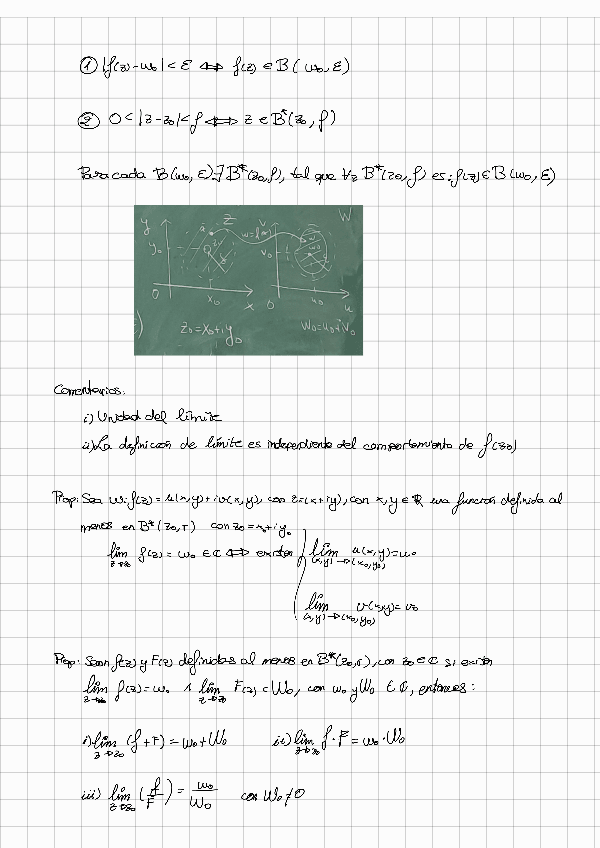 ① |f(z)-w₀| < ε ⟺ f(z) ∈ B(w₀, ε)
② 0 < |z-z₀| < ρ ⟺ z ∈ B*(z₀, ρ)
Para cada B(w₀, ε) ∃ B*(z₀, ρ), tal que ∀z B*(z₀, ρ) es: f(z) ∈ B(w₀, ε)
y Z v W
y₀ w=f(z) v₀ w₀
0 x₀ x 0 u₀ u
z₀=x₀+iy₀ w₀=u₀+iv₀
Comentarios:
i) Unidad del límite
ii) La definición de límite es independiente del comportamiento de f(z₀)
Prop: Sea w=f(z) = u(x,y)+iv(x,y), con z=(x+iy), con x,y ∈ ℝ una función definida al
menos en B*(z₀,r) con z₀=x₀+iy₀
lim z→z₀ f(z) = w₀ ∈ ℂ ⟺ existen lim (x,y)→(x₀,y₀) u(x,y)=u₀
lim (x,y)→(x₀,y₀) v(x,y)=v₀
Prop: Sean f(z) y F(z) definidas al menos en B*(z₀,r), con z₀ ∈ ℂ si existen
lim z→z₀ f(z) = w₀ ∧ lim z→z₀ F(z) = W₀, con w₀ y W₀ ∈ ℂ, entonces:
i) lim z→z₀ (f+F) = w₀+W₀ ii) lim z→z₀ f·F = w₀·W₀
iii) lim z→z₀ (f/F) = w₀/W₀ con W₀≠0